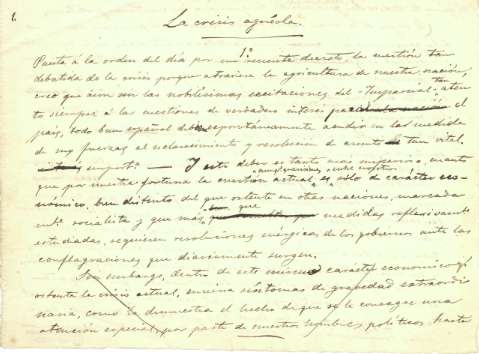 1.
La crisis agrícola.
1º
Puesta á la orden del día por un reciente decreto, la cuestión tan
debatida de la crisis porque atraviesa la agricultura de nuestra nación,
creo que aún sin las nobilísimas excitaciones del "Imparcial", tan aten
to siempre á las cuestiones de verdadero interés para el
país, todo buen español debe espontáneamente acudir en la medida
de sus fuerzas al esclarecimiento y resolución de asunto de tan vital
import.ª — Y este deber es tanto más imperioso, cuanto
que por nuestra fortuna la cuestión actual, es sólo de carácter eco-
nómico, bien distinto del que ostenta en otras naciones, marcada
mte. socialista y que más que medidas reflexivamte.
estudiadas, requieren resoluciones enérgicas de los gobiernos ante las
conflagraciones que diariamente surgen.
Sin embargo, dentro de este mismo carácter económico q.
ostenta la crisis actual, encierra síntomas de gravedad extraordi
naria, como lo demuestra el hecho de que se le consagre una
atención especial por parte de nuestros hombres políticos, hasta